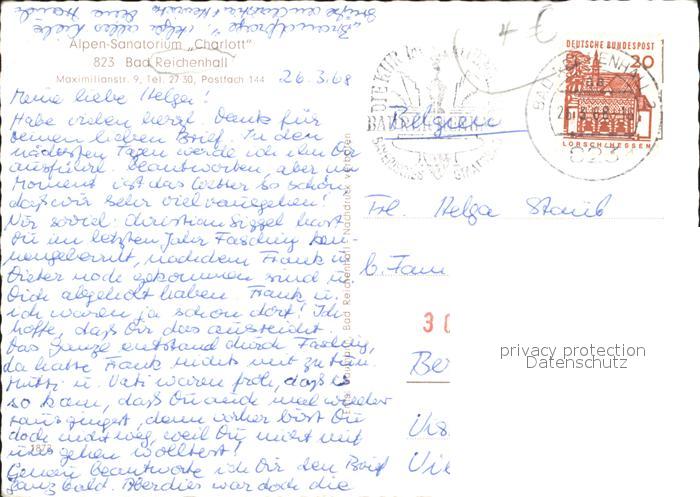 Alpen-Sanatorium „Charlott"
823 Bad Reichenhall
Maximilianstr. 9, Tel. 27 30, Postfach 144
26.3.68
Meine liebe Helga!
Habe vielen herzl. Dank für
deinen lieben Brief. In den
nächsten Tagen werde ich ihn Dir
ausführl. beantworten, aber im
Moment ist das Wetter so schön
daß wir sehr viel
Nur soviel: Christian Siggel hast
Du im letzten Jahr Fasching ken-
nengelernt, nachdem Frank u.
Dieter noch gekommen sind u.
Dich abgeholt haben. Frank u.
ich waren ja schon dort! Ich
hoffe, daß Dir das ausreicht.
Das Ganze entstand durch Fasching,
da hatte Frank nichts mit zu tun.
Mutti u. Vati waren froh, daß es
so kam, daß Du auch mal wieder
ausgingst, denn vorher bist Du
doch nicht weg, weil Du nicht mit
uns gehen wolltest!
Genau beantworte ich Dir den Brief
ganz bald. Überdies war doch die
4 €
DEUTSCHE BUNDESPOST
20
LORSCH/HESSEN
BAD REICHENHALL
823
DIE KUR
Belgien
Frl. Helga Staub
b. Fam
30
Ber
Bad Reichenhall Nachdruck verboten
1873
privacy protection
Datenschutz